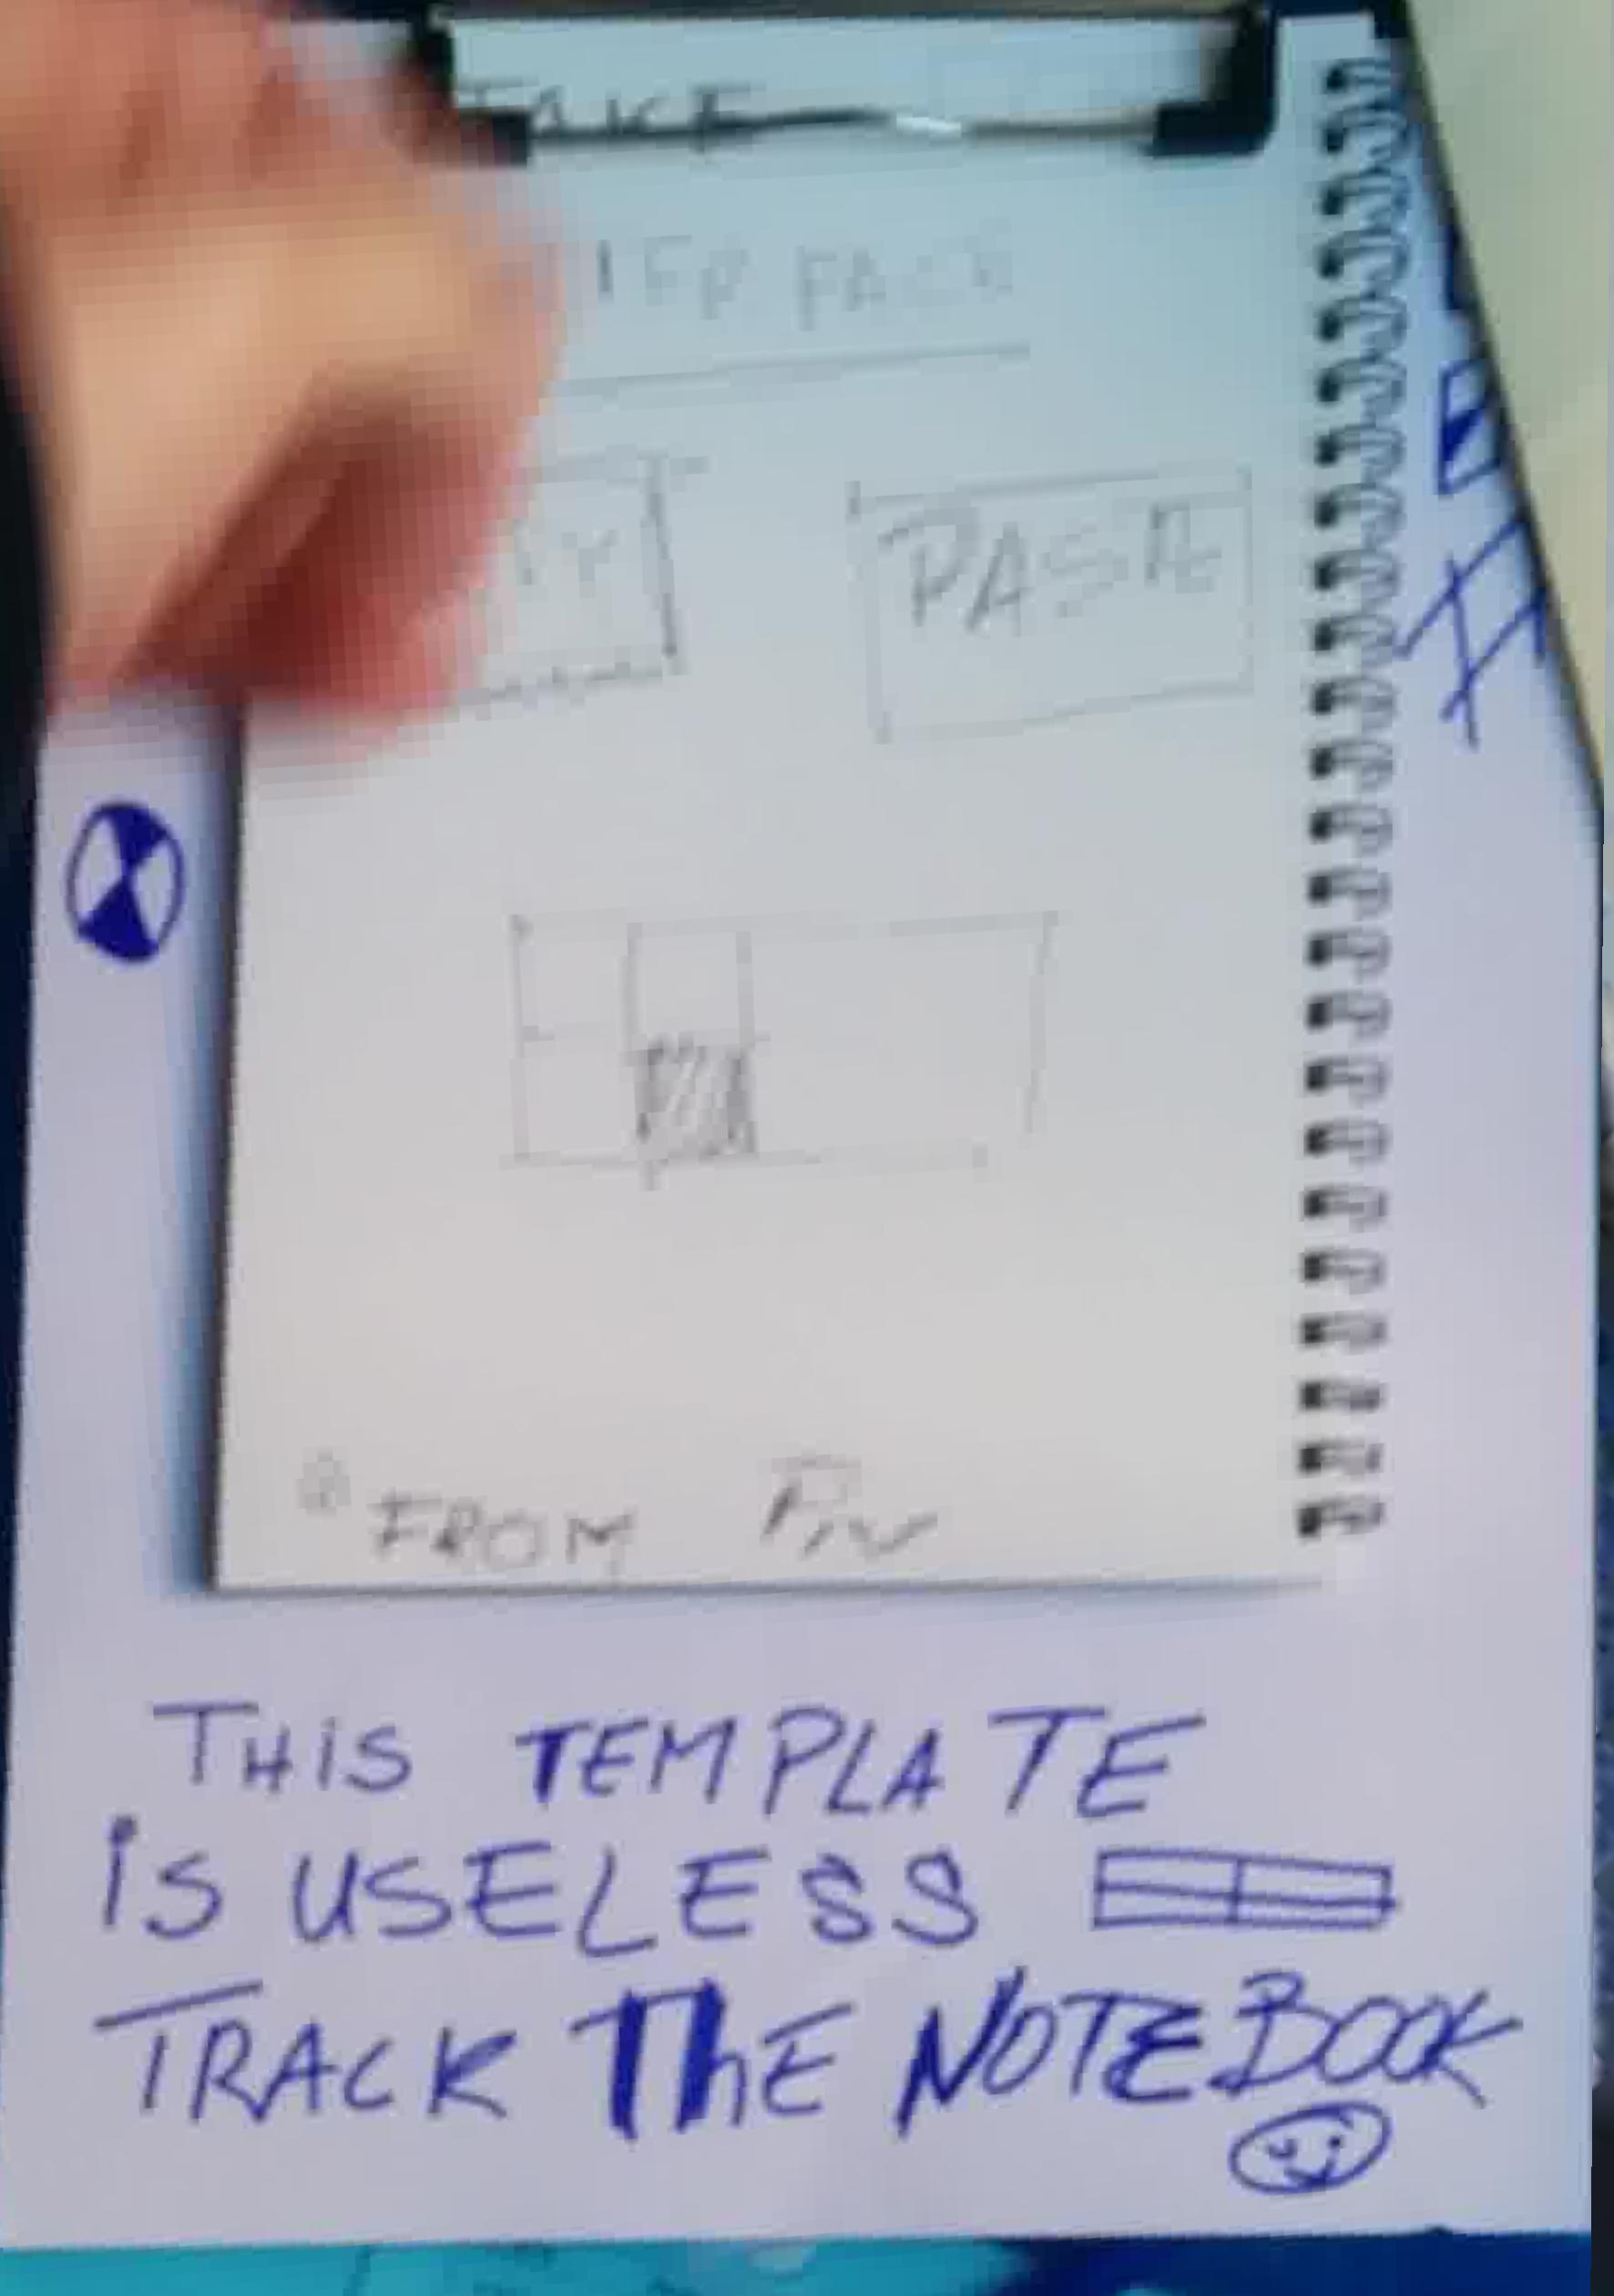 TAKE
FACE
PASTE
FROM
THiS TEMPLATE
iS USELESS
TRACK ThE NOTEBOOK